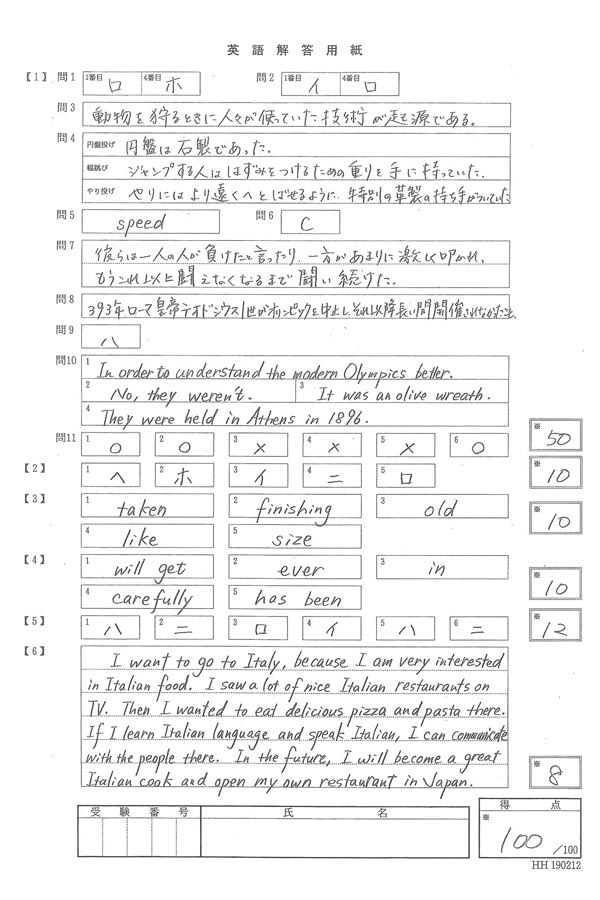 英語解答用紙
【1】 問1 1番目 ロ 4番目 ホ 問2 1番目 イ 4番目 ロ
問3 動物を狩るときに人々が使っていた技術が起源である。
問4 円盤投げ 円盤は石製であった。
幅跳び ジャンプする人ははずみをつけるための重りを手に持っていた。
やり投げ やりにはより遠くへとばせるように、特別の革製の持ち手がついていた
問5 speed 問6 C
問7 彼らは一人の人が負けたと言ったり、一方があまりに激しく叩かれ、
もうこれ以上闘えなくなるまで闘い続けた。
問8 393年ローマ皇帝テオドシウス1世がオリンピックを中止し、それ以降長い間開催されなかったこと。
問9 ハ
問10 1 In order to understand the modern Olympics better.
2 No, they weren't. 3 It was an olive wreath.
4 They were held in Athens in 1896.
問11 1 ○ 2 ○ 3 × 4 × 5 × 6 ○ ※ 50
【2】 1 ヘ 2 ホ 3 イ 4 ニ 5 ロ ※ 10
【3】 1 taken 2 finishing 3 old ※ 10
4 like 5 size
【4】 1 will get 2 ever 3 in ※ 10
4 carefully 5 has been
【5】 1 ハ 2 ニ 3 ロ 4 イ 5 ハ 6 ニ ※ 12
【6】 I want to go to Italy, because I am very interested
in Italian food. I saw a lot of nice Italian restaurants on
TV. Then I wanted to eat delicious pizza and pasta there.
If I learn Italian language and speak Italian, I can communicate
with the people there. In the future, I will become a great
Italian cook and open my own restaurant in Japan. ※ 8
受験番号 氏名 得点
※ 100 /100
HH 190212